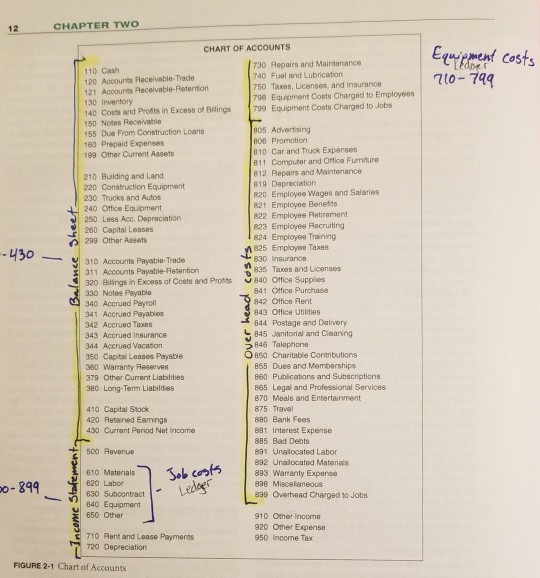 12 CHAPTER TWO
CHART OF ACCOUNTS
110 Cash
120 Accounts Receivable-Trade
121 Accounts Receivable-Retention
130 Inventory
140 Costs and Profits in Excess of Billings
150 Notes Receivable
155 Due From Construction Loans
160 Prepaid Expenses
199 Other Current Assets
210 Building and Land
220 Construction Equipment
230 Trucks and Autos
240 Office Equipment
250 Less Acc. Depreciation
260 Capital Leases
299 Other Assets
310 Accounts Payable-Trade
311 Accounts Payable-Retention
320 Billings in Excess of Costs and Profits
330 Notes Payable
340 Accrued Payroll
341 Accrued Payables
342 Accrued Taxes
343 Accrued Insurance
344 Accrued Vacation
350 Capital Leases Payable
360 Warranty Reserves
379 Other Current Liabilities
380 Long-Term Liabilities
410 Capital Stock
420 Retained Earnings
430 Current Period Net Income
500 Revenue
610 Materials
620 Labor
630 Subcontract
640 Equipment
650 Other
710 Rent and Lease Payments
720 Depreciation
-430
Balance Sheet
0-899
Income Statement
Job costs
Ledger
730 Repairs and Maintenance
740 Fuel and Lubrication
750 Taxes, Licenses, and Insurance
798 Equipment Costs Charged to Employees
799 Equipment Costs Charged to Jobs
805 Advertising
806 Promotion
810 Car and Truck Expenses
811 Computer and Office Furniture
812 Repairs and Maintenance
819 Depreciation
820 Employee Wages and Salaries
821 Employee Benefits
822 Employee Retirement
823 Employee Recruiting
824 Employee Training
825 Employee Taxes
830 Insurance
835 Taxes and Licenses
840 Office Supplies
841 Office Purchase
842 Office Rent
843 Office Utilities
844 Postage and Delivery
845 Janitorial and Cleaning
846 Telephone
850 Charitable Contributions
855 Dues and Memberships
860 Publications and Subscriptions
865 Legal and Professional Services
870 Meals and Entertainment
875 Travel
880 Bank Fees
881 Interest Expense
885 Bad Debts
891 Unallocated Labor
892 Unallocated Materials
893 Warranty Expense
898 Miscellaneous
899 Overhead Charged to Jobs
910 Other Income
920 Other Expense
950 Income Tax
Over head costs
Equipment costs
Ledger
710-799
FIGURE 2-1 Chart of Accounts